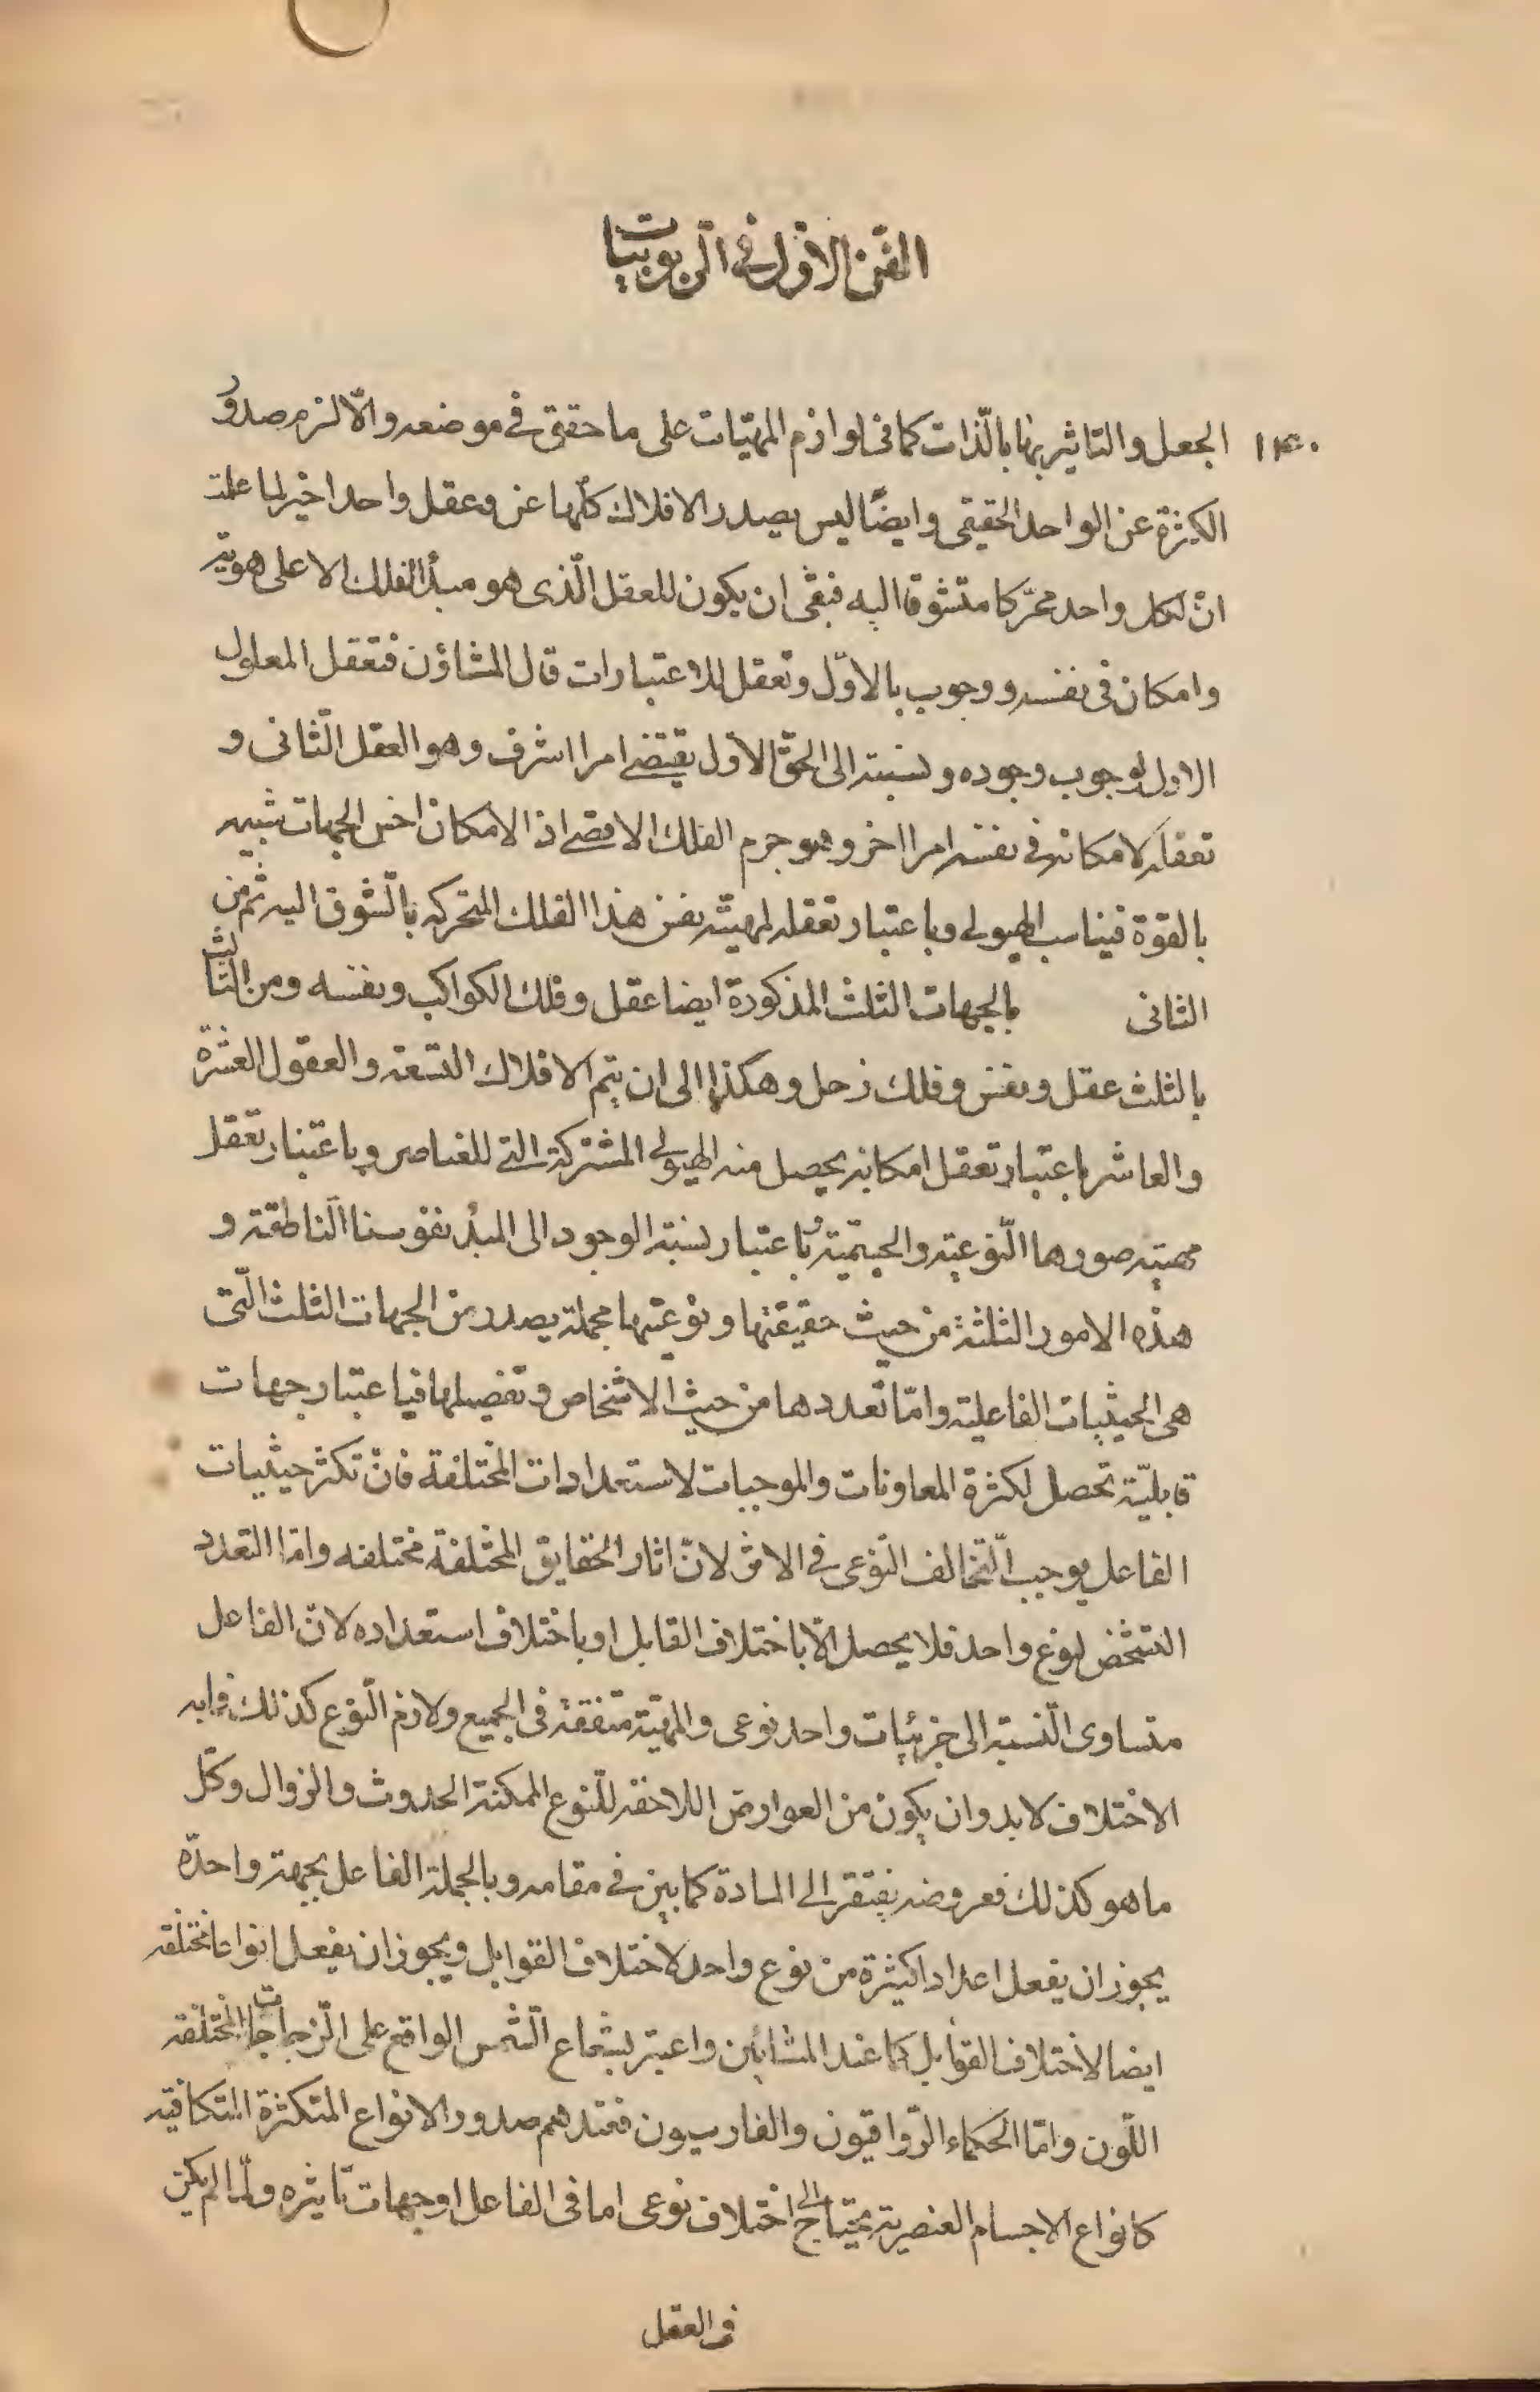 الفنّ الاوّل فی الرّبوبیّات
الجعل والتاثیر بها بالّذات كما فی لوازم المهیّات علی ما حقق فی موضعه والّا لزم صدور
الکثرة عن الواحد الحقیقی وایضًا لیس یصدر الافلاك کلّها عن عقل واحد اخیر لما علمت
انّ لكل واحد محرّكا متشوقا الیه فبقی ان یكون للعقل الّذی هو مبدأ الفلك الاعلی هویّته
وامكان فی نفسه ووجوب بالاوّل وتعقل للاعتبارات قال المشاؤن فتعقل المعلول
الاول لوجوب وجوده ونسبته الی الحقّ الاوّل یقتضی امرا اشرف وهو العقل الثّانی و
تعقله لامكانه فی نفسه امرا اخر وهو جرم الفلك الاقصی اذ الامكان اخس الجهات شبیه
بالقوة فیناسب الهیولی وباعتبار تعقله لمهیّته نفس هذا الفلك المتحركه بالشّوق الیه ثمّ من
الثانی بالجهات الثلث المذكورة ایضا عقل وفلك الكواكب ونفسه ومن الثالث
بالثلث عقل ونفس وفلك زحل وهكذا الی ان یتم الافلاك التسعة والعقول العشرة
والعاشر باعتبار تعقل امكانه یحصل منه الهیولی المشتركة التی للعناصر وباعتبار تعقل
مهیته صورهما النّوعیته والجسمیّة وباعتبار نسبة الوجود الی المبدُ نفوسنا النّاطقة و
هذه الامور الثلثة من حیث حقیقتها ونوعیّتها مجملة یصدر عن الجهات الثلث الّتی
هی الحیثیات الفاعلیة وامّا تعددها من حیث الاشخاص وتفصیلها فباعتبار جهات
قابلیّة تحصل لكثرة المعاونات والموجبات لاستعدادات المختلفة فانّ تكثر حیثیات
الفاعل یوجب التّخالف النّوعی فی الاثر لانّ اثار الحقایق المختلفة مختلفه وامّا التعدد
التشخّص لنوع واحد فلا یحصل الّا باختلاف القابل او باختلاف استعداده لانّ الفاعل
متساوی النّسبة الی جزئیات واحد نوعی والمهیّة متفقة فی الجمیع ولازم النّوع كذلك فما به
الاختلاف لا بد وان یكون من العوارض اللاحقه للنّوع الممكنة الحدوث والزوال وكلّ
ما هو كذلك فعروضه یفتقر الی المادة كما بین فی مقامه وبالجملة الفاعل بجهة واحدة
یجوز ان یفعل اعدادا كثیرة من نوع واحد لاختلاف القوابل ویجوز ان یفعل انواعا مختلفه
ایضا لاختلاف القوابل كما عند المشائین واعتبر بشعاع الشّمس الواقع علی الزّجاجات المختلفه
اللّون وامّا الحكماء الرّواقیون والفارسیون فعندهم صدور الانواع المتكثرة المتكافیه
كانواع الاجسام العنصریة یحتاج الی اختلاف نوعی اما فی الفاعل او جهات تاثیره ولمّا لم یكن
فی العقل